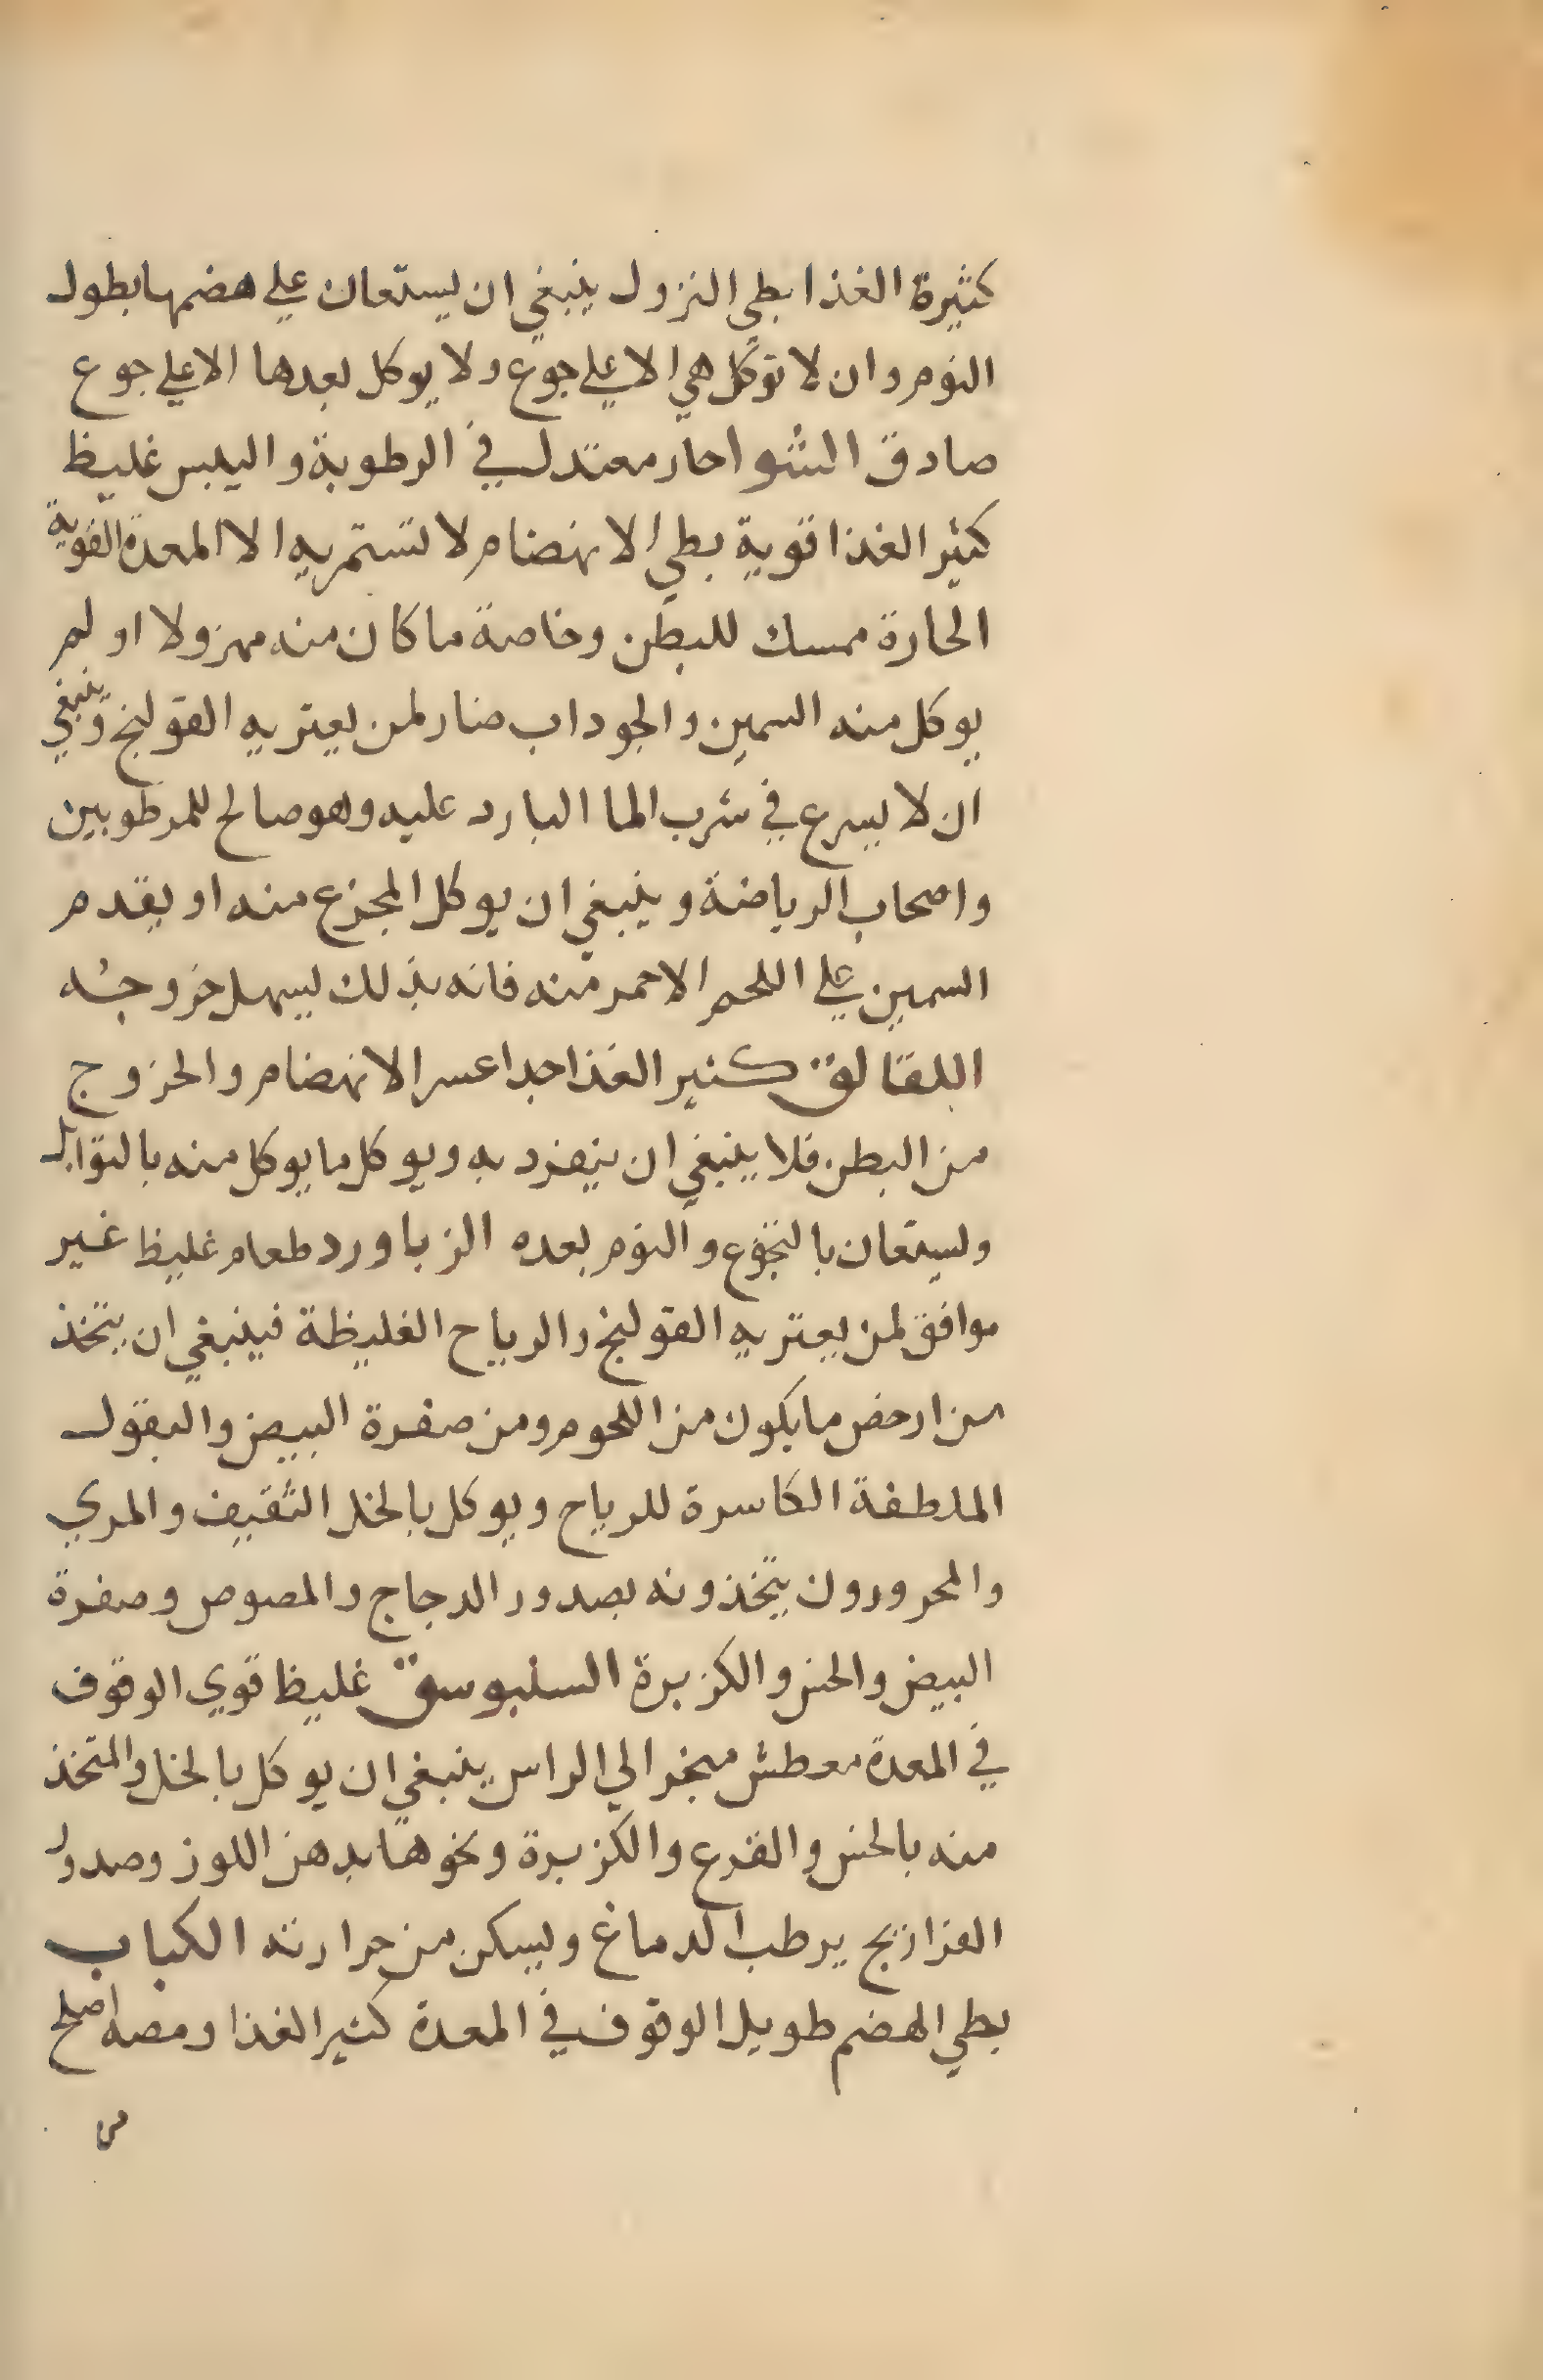 كثيرة الغذا بطي النزول ينبغي ان يستعان علي هضمها بطول
النوم وان لا توكل هي الا علي جوع ولا يوكل بعدها الا علي جوع
صادق الشوا حار معتدل في الرطوبة واليبس غليظ
كثير الغذا قوية بطي الانهضام لا تستمريه الا المعدة القوية
الحارة ممسك للبطن وخاصة ما كان منه مهزولا او لم
يوكل منه السمين والجوداب ضار لمن يعتريه القولنج وينبغي
ان لا يسرع في شرب الما البارد عليه وهو صالح للمرطوبين
واصحاب الرياضة وينبغي ان يوكل المجزع منه او يقدم
السمين علي اللحم الاحمر منه فانه بذلك يسهل خروجه
اللقالق كثير الغذا جدا عسر الانهضام والخروج
من البطن فلا ينبغي ان ينفرد به ويوكل ما يوكل منه بالتوابل
ويستعان بالتجوع والنوم بعده الزباورد طعام غليظ غير
موافق لمن يعتريه القولنج والرياح الغليظة فينبغي ان يتخذ
من ارخص ما يكون من اللحوم ومن صفرة البيض والبقول
الملطفة الكاسرة للرياح ويوكل بالخل الثقيف والمري
والمحرورون يتخذونه بصدور الدجاج والمصوص وصفرة
البيض والخس والكزبرة السنبوسق غليظ قوي الوقوف
في المعدة معطش مبخر الي الراس ينبغي ان يوكل بالخل والمتخذ
منه بالخس والقرع والكزبرة ونحوها بدهن اللوز وصدور
الفراريج يرطب الدماغ ويسكن من حرارته الكباب
بطي الهضم طويل الوقوف في المعدة كثير الغذا ومصه اصلح
من